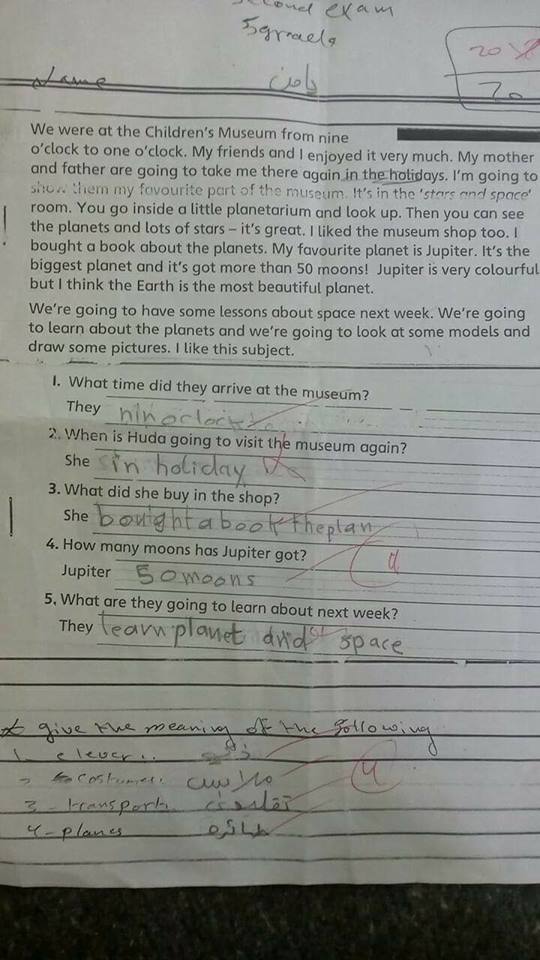 second exam
5grade
20
20
Name يامن
We were at the Children's Museum from nine
o'clock to one o'clock. My friends and I enjoyed it very much. My mother
and father are going to take me there again in the holidays. I'm going to
show them my favourite part of the museum. It's in the 'stars and space'
room. You go inside a little planetarium and look up. Then you can see
the planets and lots of stars – it's great. I liked the museum shop too. I
bought a book about the planets. My favourite planet is Jupiter. It's the
biggest planet and it's got more than 50 moons! Jupiter is very colourful
but I think the Earth is the most beautiful planet.
We're going to have some lessons about space next week. We're going
to learn about the planets and we're going to look at some models and
draw some pictures. I like this subject.
1. What time did they arrive at the museum?
They nin oclock
2. When is Huda going to visit the museum again?
She in holiday
3. What did she buy in the shop?
She bought a book the plan
4. How many moons has Jupiter got?
Jupiter 50 moons
4
5. What are they going to learn about next week?
They learn planet and space
give the meaning of the following
1. clever.. ذكي
2 costumes. ملابس
4
3 - transport.
4 - planes طائره